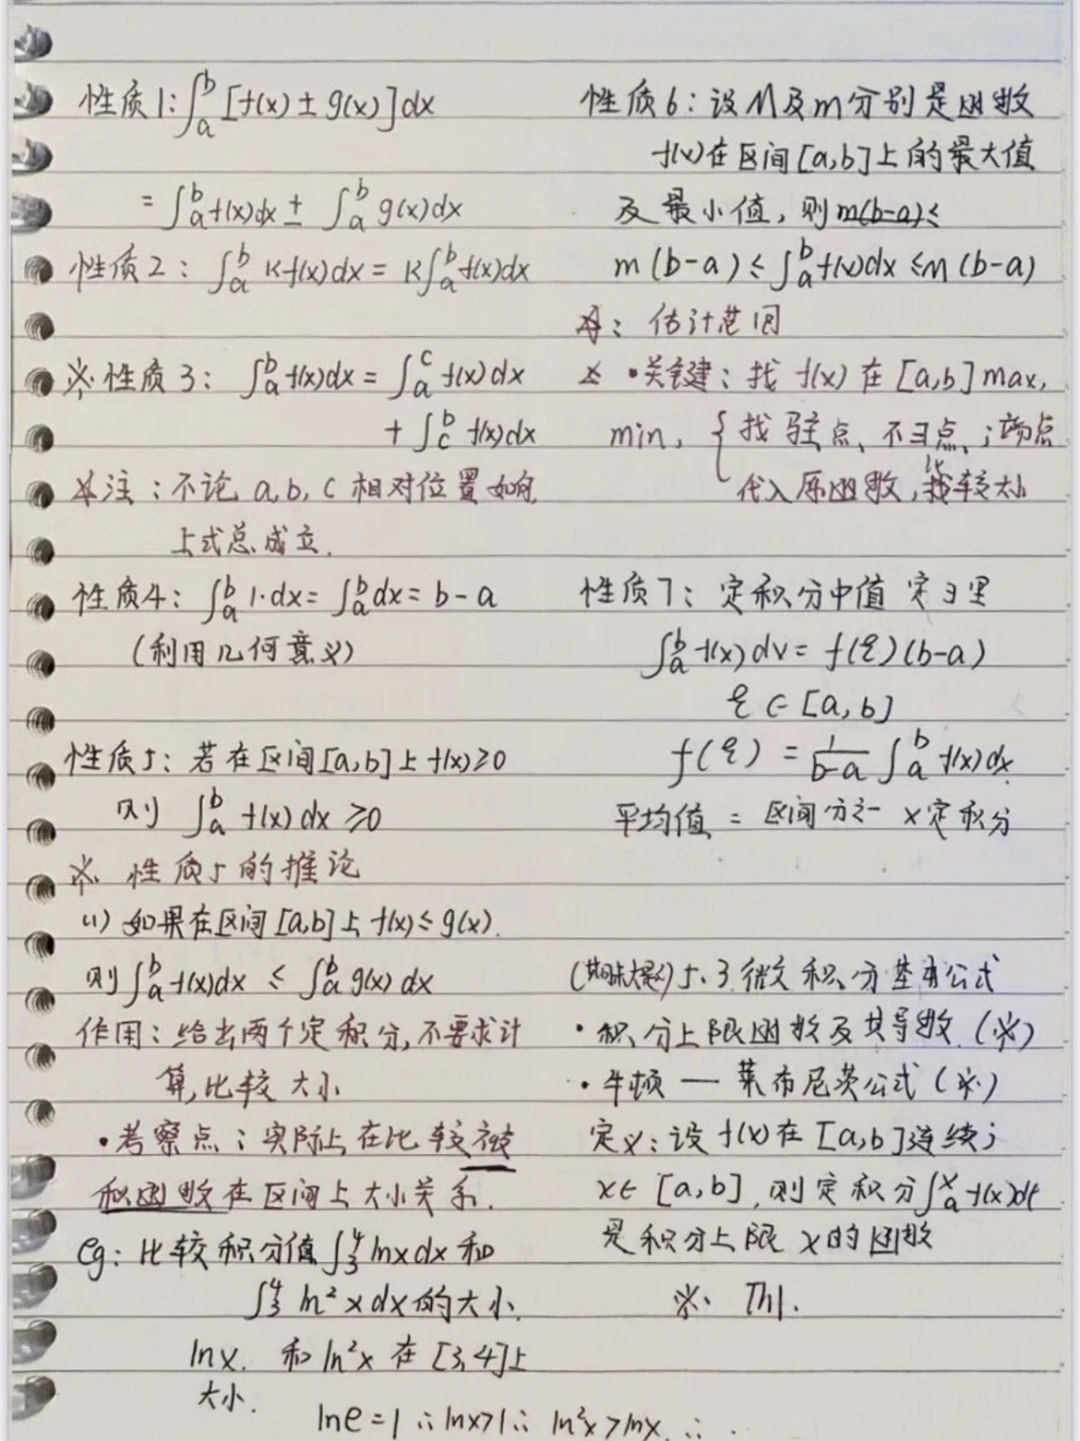 性质1:∫_a^b [f(x) ± g(x)]dx
= ∫_a^b f(x)dx ± ∫_a^b g(x)dx
性质2: ∫_a^b Kf(x)dx = K∫_a^b f(x)dx
※性质3: ∫_a^b f(x)dx = ∫_a^c f(x)dx
+ ∫_c^b f(x)dx
☆注:不论a,b,c相对位置如何
上式总成立.
性质4: ∫_a^b 1·dx = ∫_a^b dx = b-a
(利用几何意义)
性质5:若在区间[a,b]上f(x)≥0
则 ∫_a^b f(x)dx ≥0
※. 性质5的推论
(1) 如果在区间[a,b]上f(x)≤g(x).
则∫_a^b f(x)dx ≤ ∫_a^b g(x)dx
作用:给出两个定积分,不要求计
算,比较大小
·考察点:实际上在比较被
积函数在区间上大小关系.
eg:比较积分值∫_3^4 lnxdx和
∫_3^4 ln²xdx的大小.
lnx. 和ln²x在[3,4]上
大小.
lne=1 ∴lnx>1∴ ln²x>lnx ∴
性质6:设M及m分别是函数
f(x)在区间[a,b]上的最大值
及最小值,则m(b-a)≤
m(b-a)≤∫_a^b f(x)dx≤M(b-a)
☆:估计范围
☆ ·关键:找f(x)在[a,b]max,
min, {找驻点、不可点、;端点
代入原函数,比较大小
性质7:定积分中值定理
∫_a^b f(x)dx = f(ξ)(b-a)
ξ∈[a,b]
f(ξ) = 1/(b-a) ∫_a^b f(x)dx
平均值 = 区间分之一 ×定积分
(期末大题)5.3.微文积分基本公式
·积分上限函数及其导数.(※)
·牛顿 — 莱布尼茨公式(※)
定义:设f(x)在[a,b]连续;
x∈[a,b],则定积分∫_a^x f(x)dt
是积分上限x的函数
※. Th1.